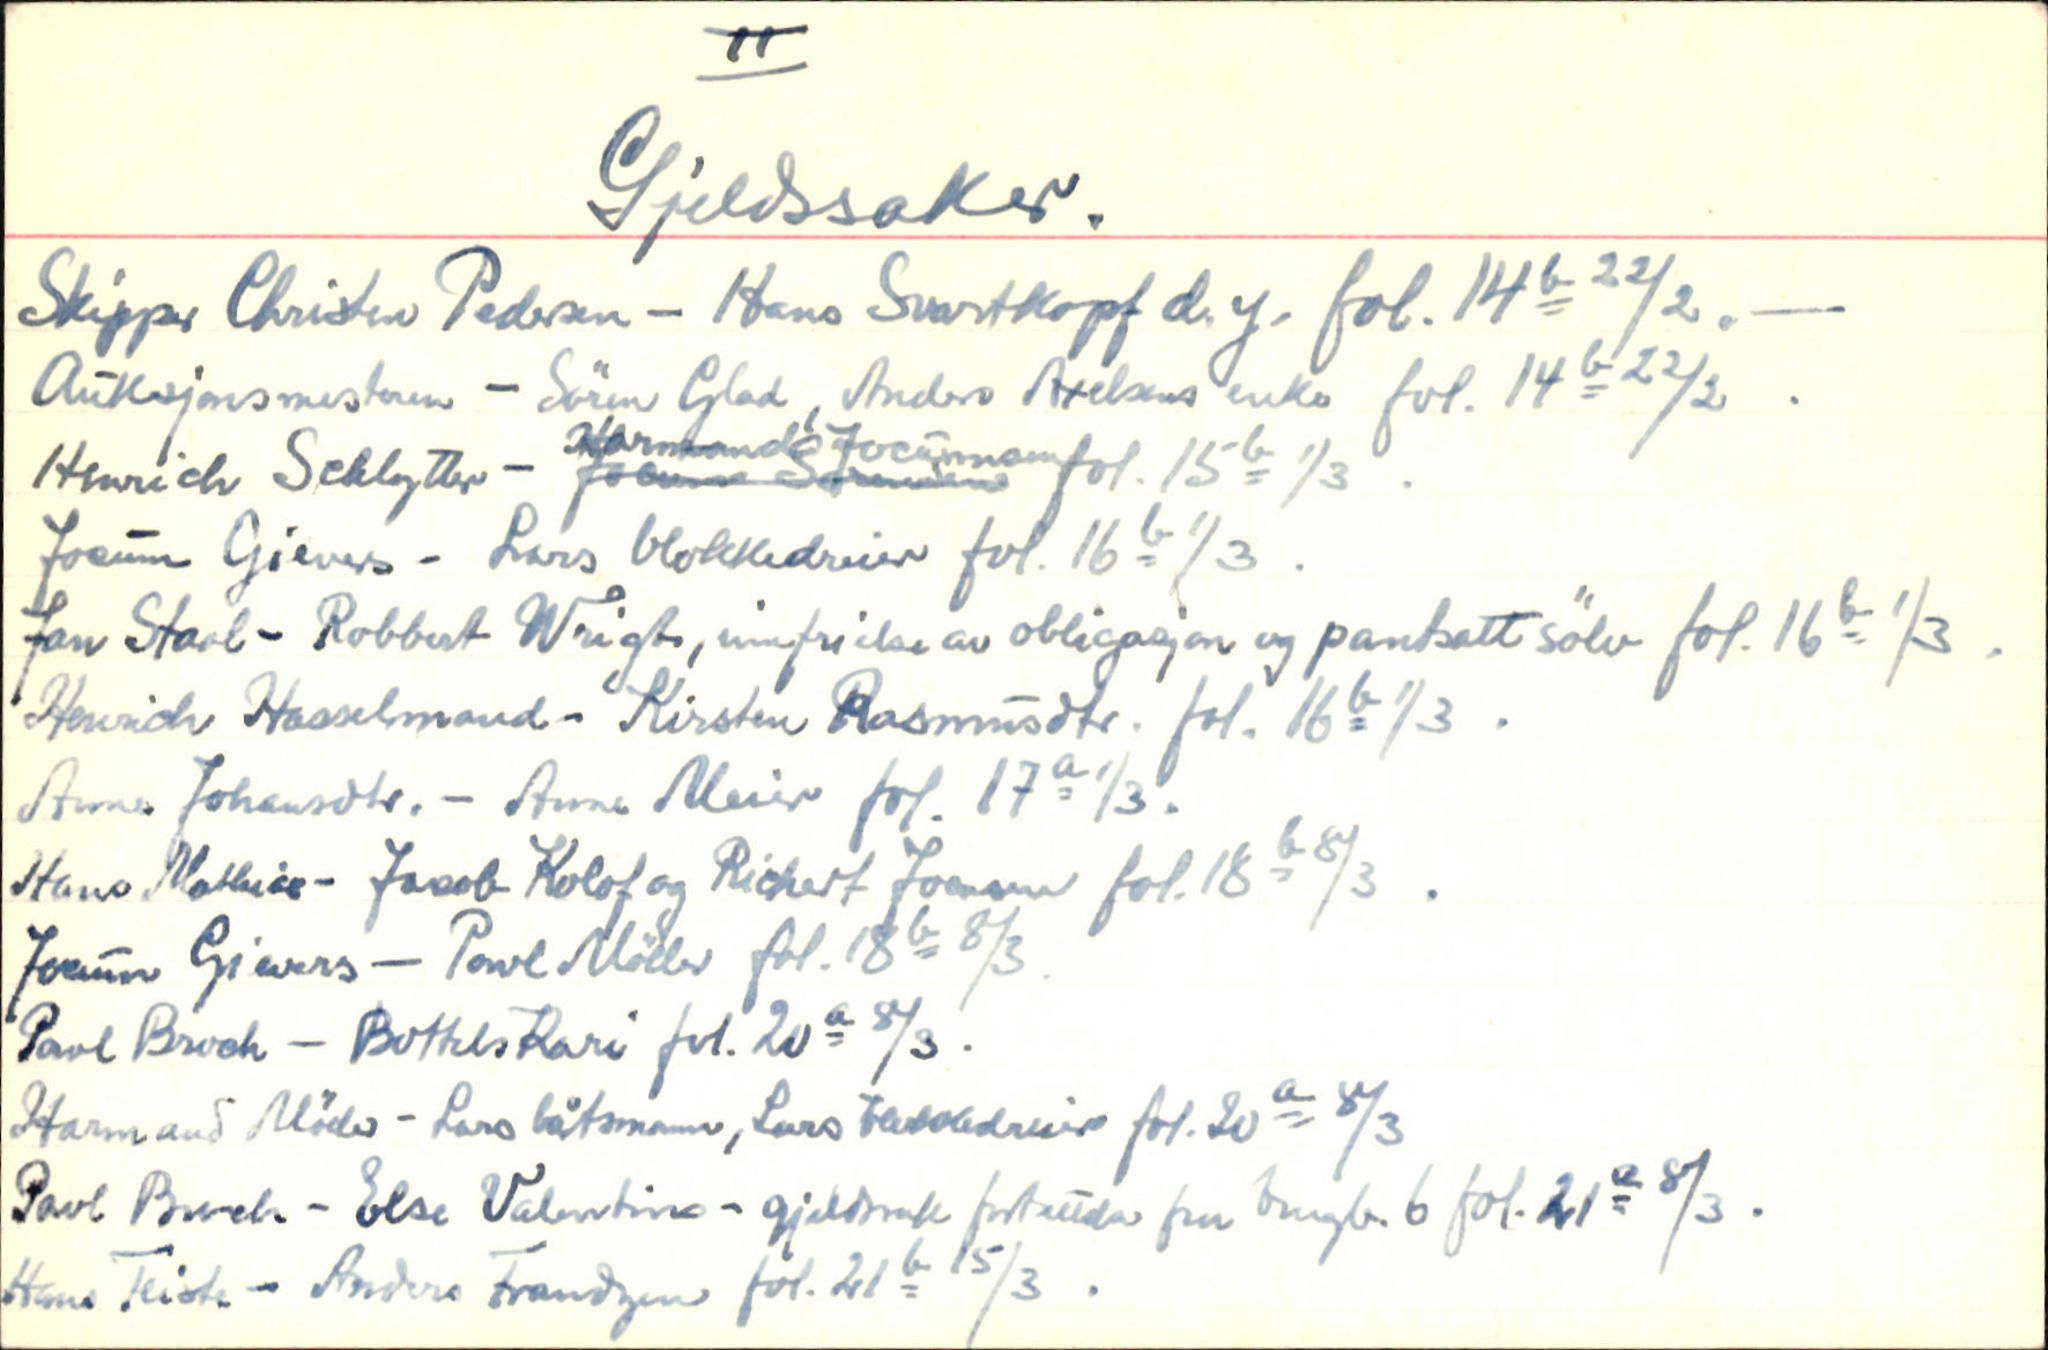 II
Gjeldssaker.
Skipper Christen Pedersen - Hans Svartkopf d. y. fol. 14 b 22/2. —
Auksjonsmesteren - Sören Glad, Anders Axelsens enke fol. 14 b 22/2.
Henrich Schlytter - Harmand Jocumsen fol. 15 b 1/3.
Jocum Gievers - Lars blokkedreier fol. 16 b 1/3.
Jan Staol - Robbert Wrigt, innfrielse av obligasjon og pantsatt sölv fol. 16 b 1/3.
Henrich Hasselmand - Kirsten Rasmusdtr. fol. 16 b 1/3.
Anne Johansdtr. - Anne Meier fol. 17 a 1/3.
Hans Mathias - Jacob Kolof og Richert Jocumsen fol. 18 b 8/3.
Jocum Gievers - Povl Möller fol. 18 b 8/3.
Povl Broch - Bottels Kari fol. 20 a 8/3.
Harmand Möller - Lars båtsmann, Lars blokkedreier fol. 20 a 8/3
Povl Broch - Else Valentins - gjeldssak fol. 21 a 8/3.
Hans Teiste - Anders Frandzen fol. 21 b 15/3.